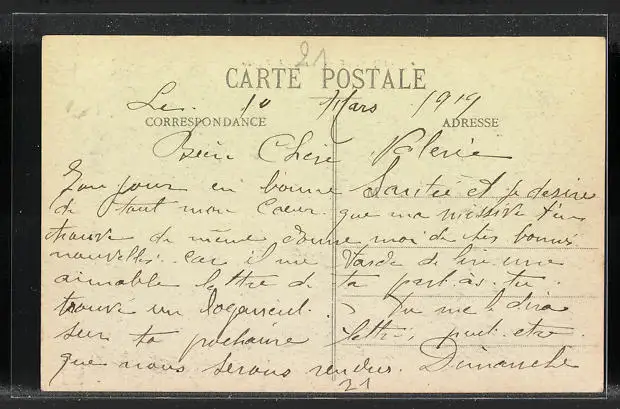 21
CARTE POSTALE
Le 10 Mars 1919
CORRESPONDANCE ADRESSE
Bien Chère Valerie
jour en bonne Santée et je desire
de tout mon Coeur que ma missive t'en
trouve de même donne moi de tes bonnes
nouvelles car il me tarde de lire une
aimable lettre de ta part as-tu
trouvé un logement Tu me le dira
sur ta prochaine lettre, peut etre
que nous serons rendus Dimanche
21